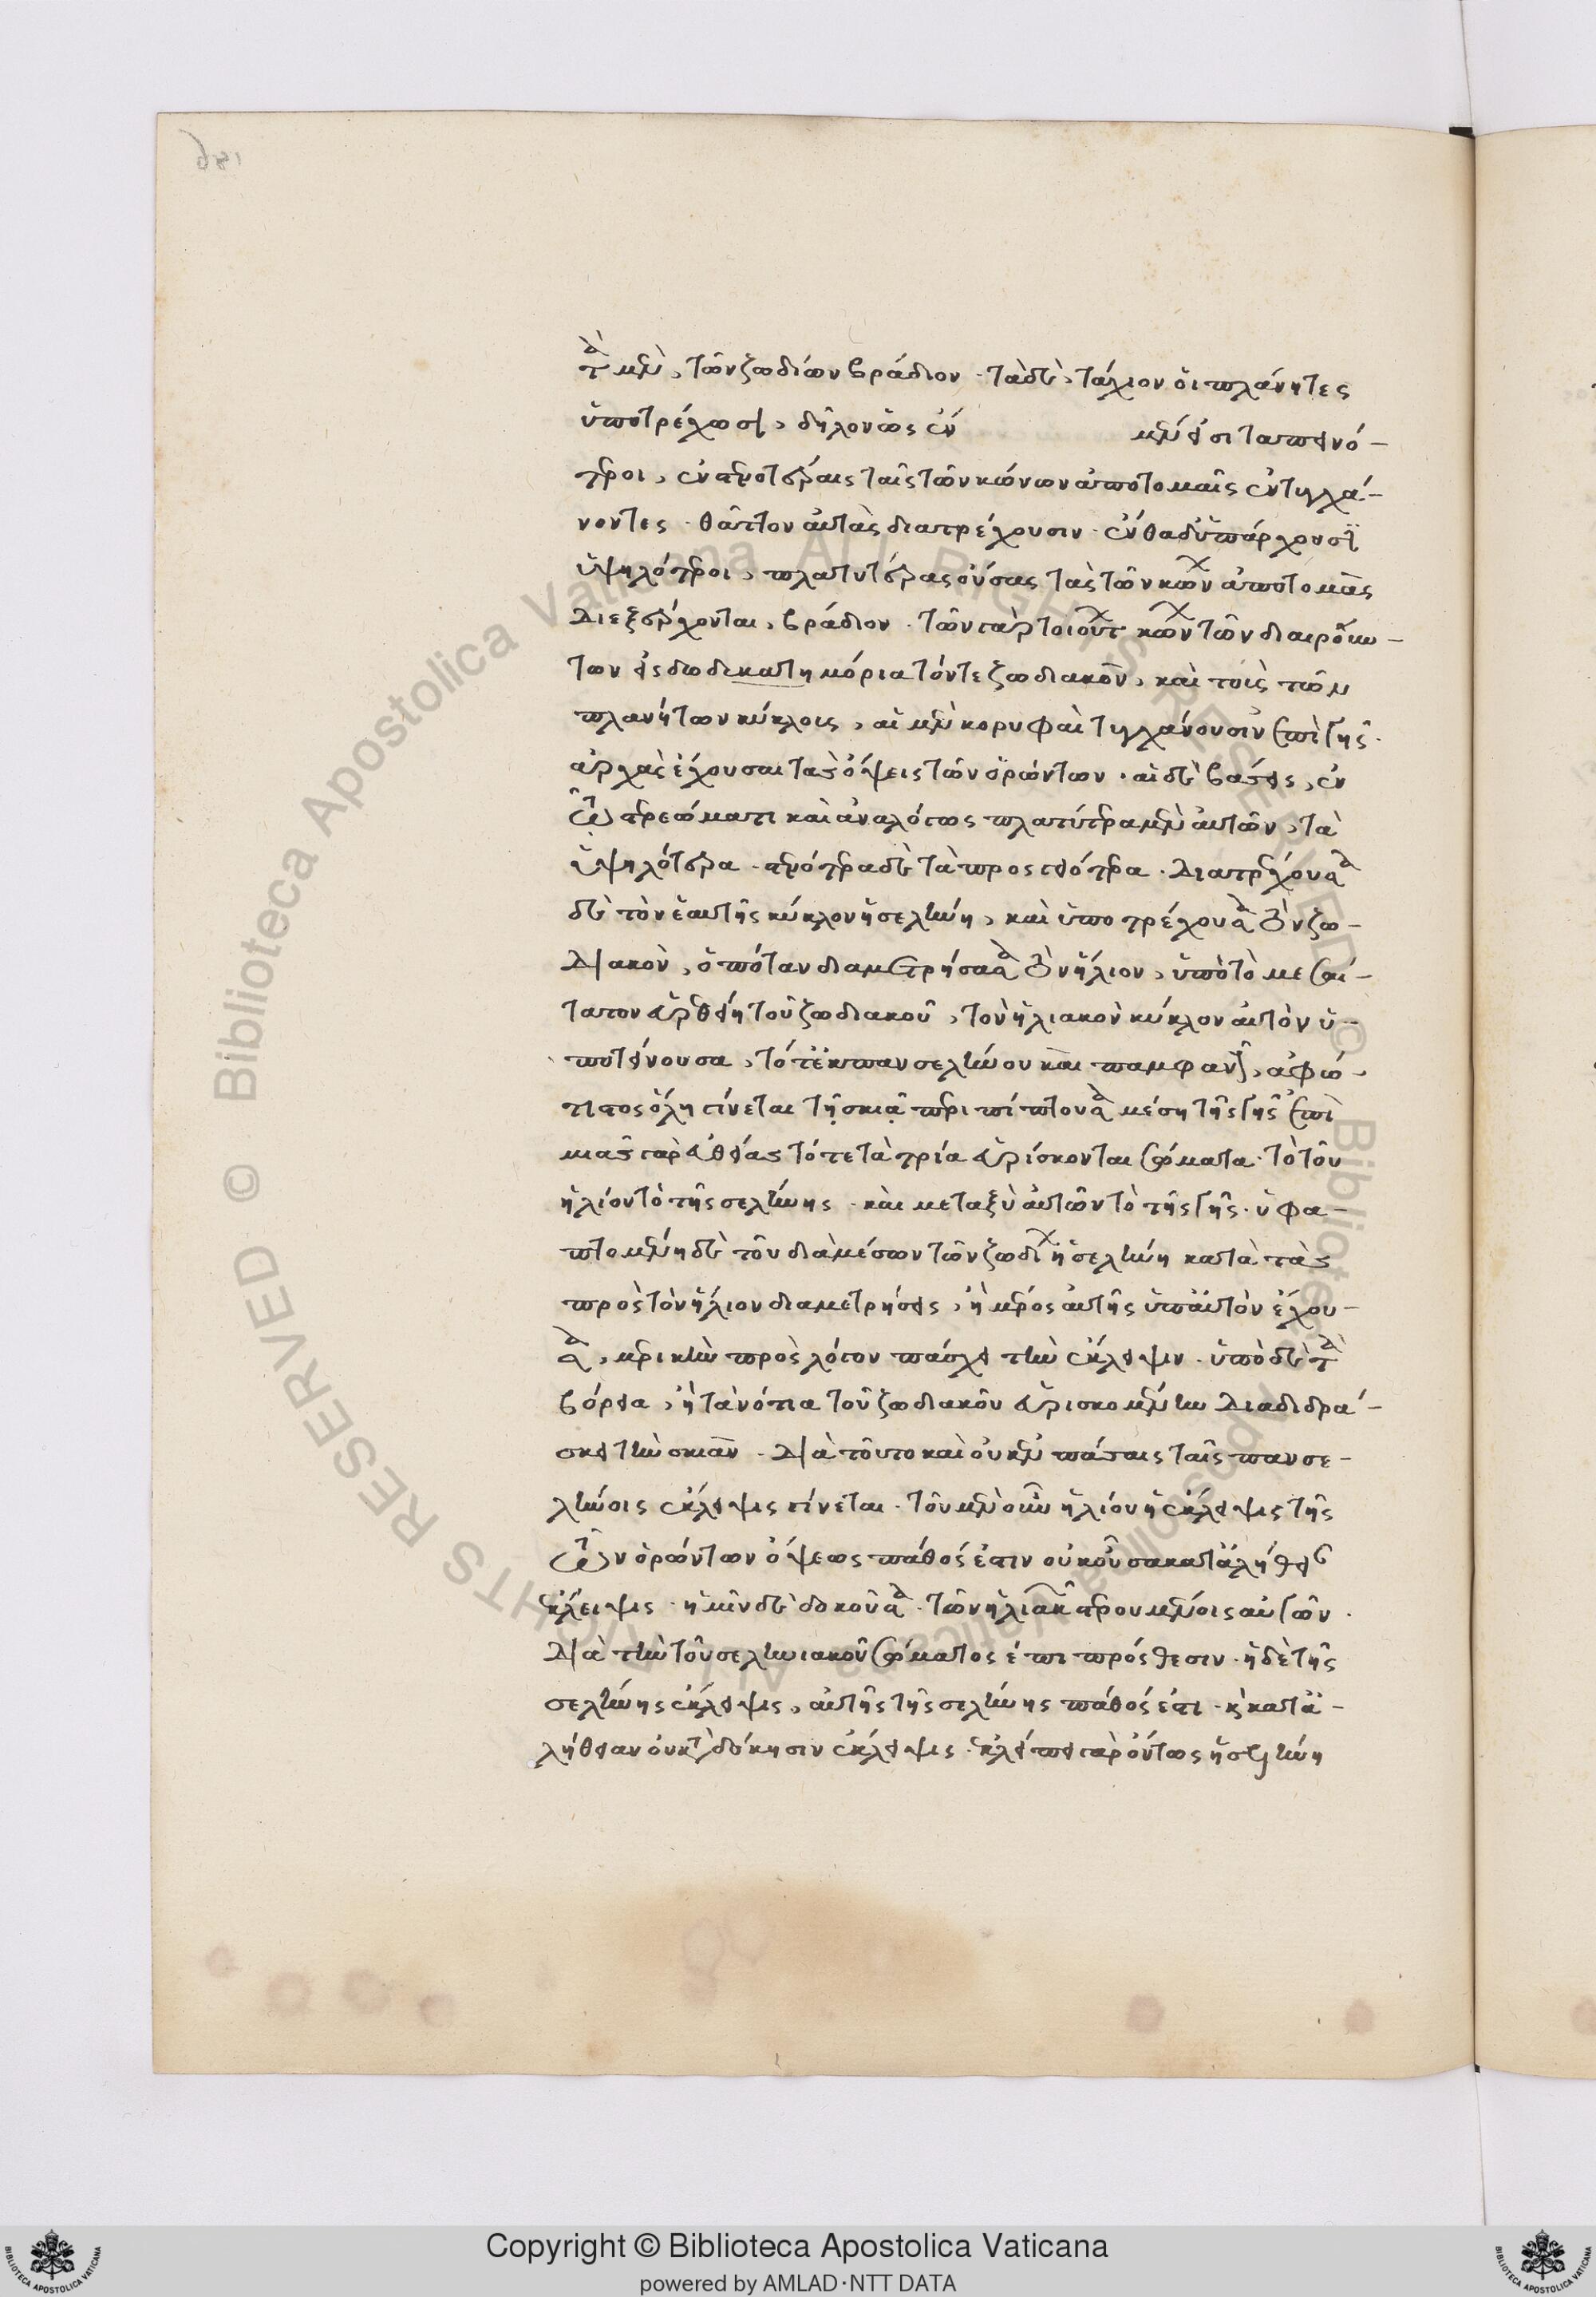 τὰ μὲν, τῶν ζωδίων βράδιον. τὰ δὲ, τάχιον ὁι πλάνητες
ὑποτρέχωσι, δῆλον ὡς ἐν μὲν εἰσι ταπεινό-
τεροι, ἐν στενοτέραις ταῖς τῶν κώνων ἀποτομαῖς ἐντυγχά-
νοντες. θᾶττον ἀυτὰς διατρέχουσιν. ἔνθα δ' ὑπάρχουσιν
ὑψηλότεροι, πλατυτέρας οὔσας τὰς τῶν κώνων ἀποτομὰς
διεξέρχονται, βράδιον. τῶν γὰρ τοιούτων κώνων τῶν διαιρούν-
των εἰς δωδεκατημόρια τόν τε ζωδιακὸν, καὶ τοὺς τῶν
πλανήτων κύκλους, αἱ μὲν κορυφαὶ τυγχάνουσιν ἐπὶ γῆς.
ἀρχὰς ἔχουσαι τὰς ὄψεις τῶν ὁρώντων. αἱ δὲ βάσεις, ἐν
τῷ στερεώματι καὶ ἀναλόγως πλατύτερα μὲν ἀυτῶν, τὰ
ὑψηλότερα. στενότερα δὲ τὰ προσγειότερα. διατρέχουσα
δὲ τὸν ἑαυτῆς κύκλον ἡ σελήνη, καὶ ὑποτρέχουσα τὸν ζω-
διακὸν, ὁπόταν διαμετρήσασα τὸν ἥλιον, ὑπὸ τὸ μεσαί-
τατον εὑρεθείη τοῦ ζωδιακοῦ, τὸν ἡλιακὸν κύκλον ἀυτὸν ὑ-
ποτείνουσα, τότε ἐκ πανσελήνου καὶ παμφανοῦς, ἀφώ-
τιστος ὅλη γίνεται τῇ σκιᾷ περιπίπτουσα μέση τῆς γῆς ἐπὶ
μιᾶς γὰρ ἐυθείας τότε τὰ τρία εὑρίσκονται σώματα. τὸ τοῦ
ἡλίου τὸ τῆς σελήνης. καὶ μεταξὺ ἀυτῶν τὸ τῆς γῆς. ὑφα-
πτομένη δὲ τοῦ διὰ μέσων τῶν ζωδίων ἡ σελήνη κατὰ τὰς
πρὸς τὸν ἥλιον διαμετρήσεις, ἢ μέρος ἀυτῆς ὑπ' ἀυτὸν ἔχου-
σα, μερικὴν πρὸς λόγον πάσχει τὴν ἔκλειψιν. ὑπὸ δὲ τὰ
βόρεια, ἢ τὰ νότια τοῦ ζωδιακοῦ εὑρισκομένη διαδιδρά-
σκει τὴν σκιάν. διὰ τοῦτο καὶ οὐκ ἐν πάσαις ταῖς πανσε-
λήνοις ἔκλειψις γίνεται. τοῦ μὲν οὖν ἡλίου ἡ ἔκλειψις τῆς
τῶν ὁρώντων ὄψεως πάθος ἐστιν οὐκ οὖσα κατ' ἀλήθειαν
ἔκλειψις. ἡμῖν δὲ δοκοῦσα. τῶν ἡλιακῶν στερουμένοις αὐγῶν.
διὰ τὴν τοῦ σεληνιακοῦ σώματος ἐπιπρόσθεσιν. ἡ δὲ τῆς
σελήνης ἔκλειψις, ἀυτῆς τῆς σελήνης πάθός ἐστι. καὶ κατ' ἀ-
λήθειαν οὐ κατὰ δόκησιν ἔκλειψις. ἐκλείπει γὰρ ὄντως ἡ σελήνη